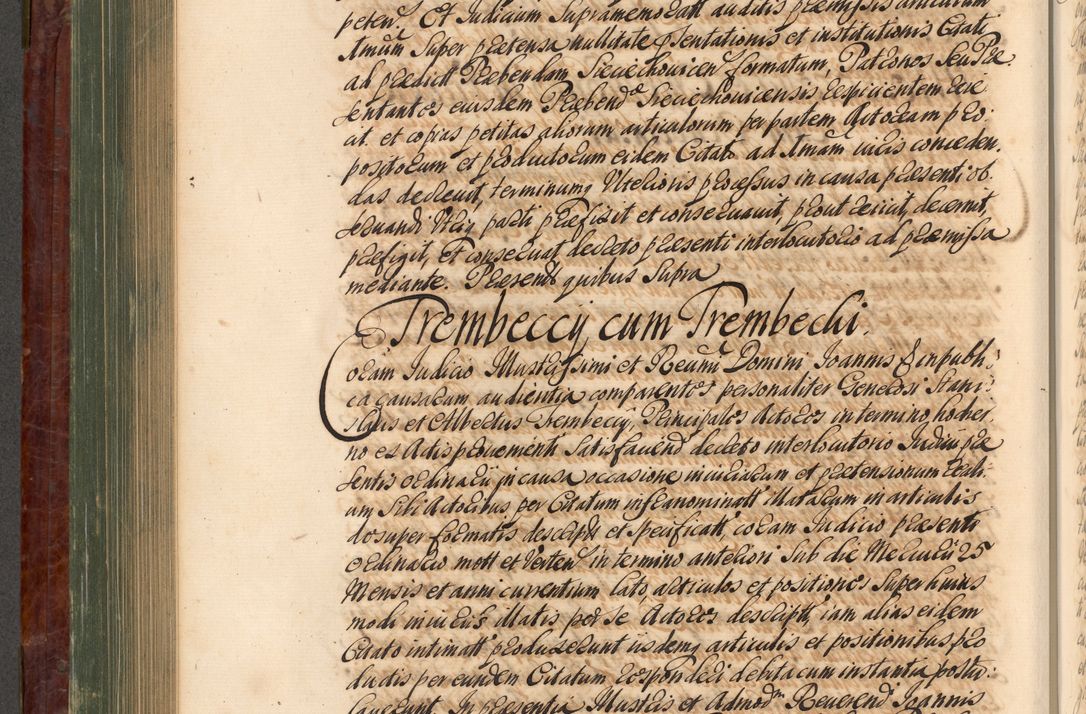 peten. Et Judicium Supramemoratt auditis præmissis articulum
Imum Super prætensa nullitate præsentationis et institutionis Citati
ad prædict Præbendam Sieciechovicen formatum, Patronos Seu Præ
sentantes eiusdem Præbendæ Sieciechovicensis respicientem reie
cit et copias petitas aliorum articulorum per partem Actoream pro
positorum et productorum eidem Citato ad Imam vicis conceden.
das decrevit, terminumq Ulterioris processus in causa præsenti ob.
servandi Utriq parti præfixit et conservavit, prout reiicit, decernit,
præfigit, et conservat decreto præsenti interlocutorio ad præmissa
mediante. Præsent quibus Supra
Trembeccy cum Trembecki.
Coram Judicio Illustrissimi et Reverendi Domini Joannis in publi:
ca causarum audientia comparentes personaliter Generosi Stani:
slaus et Albertus Trembeccy, Principales Actores in termino hodier
no ex Actis provenienti Satisfaciend decreto interlocutorio Judicii præ
sentis ordinarii in causa occasione iniuriarum et prætensionum reali
um Sibi Actoribus per Citatum infranominatt illatarum in articulis
desuper formatis descript et specificatt, coram Judicio præsenti
ordinario mott et Verten in termino anteriori Sub die Mercurii 25
Mensis et anni currentium lato, articulos et positiones Super huius
modi iniuriis illatis per se Actores descript, iam alias eidem
Citato intimatt produxerunt iisdemq articulis et positionibus pro
ductis per eundem Citatum responderi debita cum instantia postu:
laverunt In præsentia Illustris et Admodm Reverend Joannis